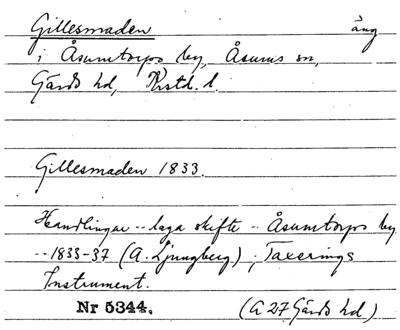 Gillesmaden äng
i Åsumtorps by, Åsums sn,
Gärds hd, Krstd. l.
Gillesmaden 1833.
Handlingar -- laga skifte -- Åsumtorps by
-- 1833-37 (A. Ljungberg); Taxerings
Instrument.
Nr 5344. (A 27 Gärds hd)